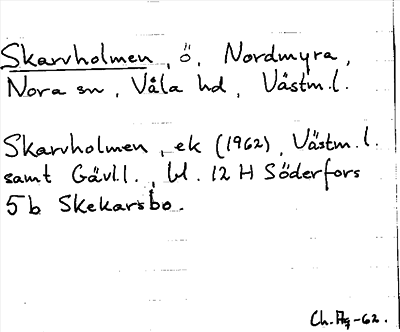 Skarvholmen, ö, Nordmyra,
Nora sn, Våla hd, Västm.l.
Skarvholmen, ek (1962), Västm.l.
samt Gävl.l., bl. 12 H Söderfors
5b Skekarsbo.
Ch.Hg-62.